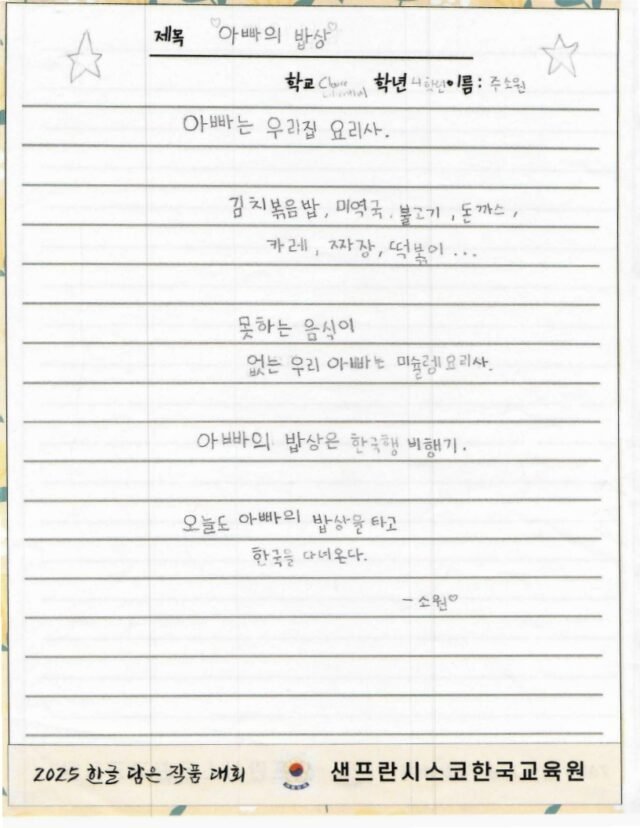 제목 ♡아빠의 밥상♡
학교 학년 4학년 이름: 주소원
아빠는 우리집 요리사.
김치볶음밥, 미역국, 불고기, 돈까스,
카레, 짜장, 떡볶이 ...
못하는 음식이
없는 우리 아빠는 미슐렝 요리사.
아빠의 밥상은 한국행 비행기.
오늘도 아빠의 밥상을 타고
한국을 다녀온다.
- 소원♡
2025 한글 담은 작품 대회
샌프란시스코한국교육원